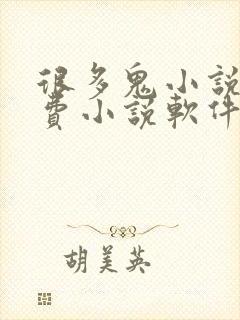 很多鬼小說
費小説軟件
胡美英